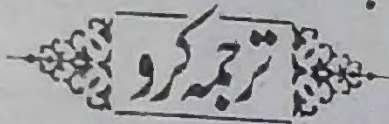 ترجمہ کرو